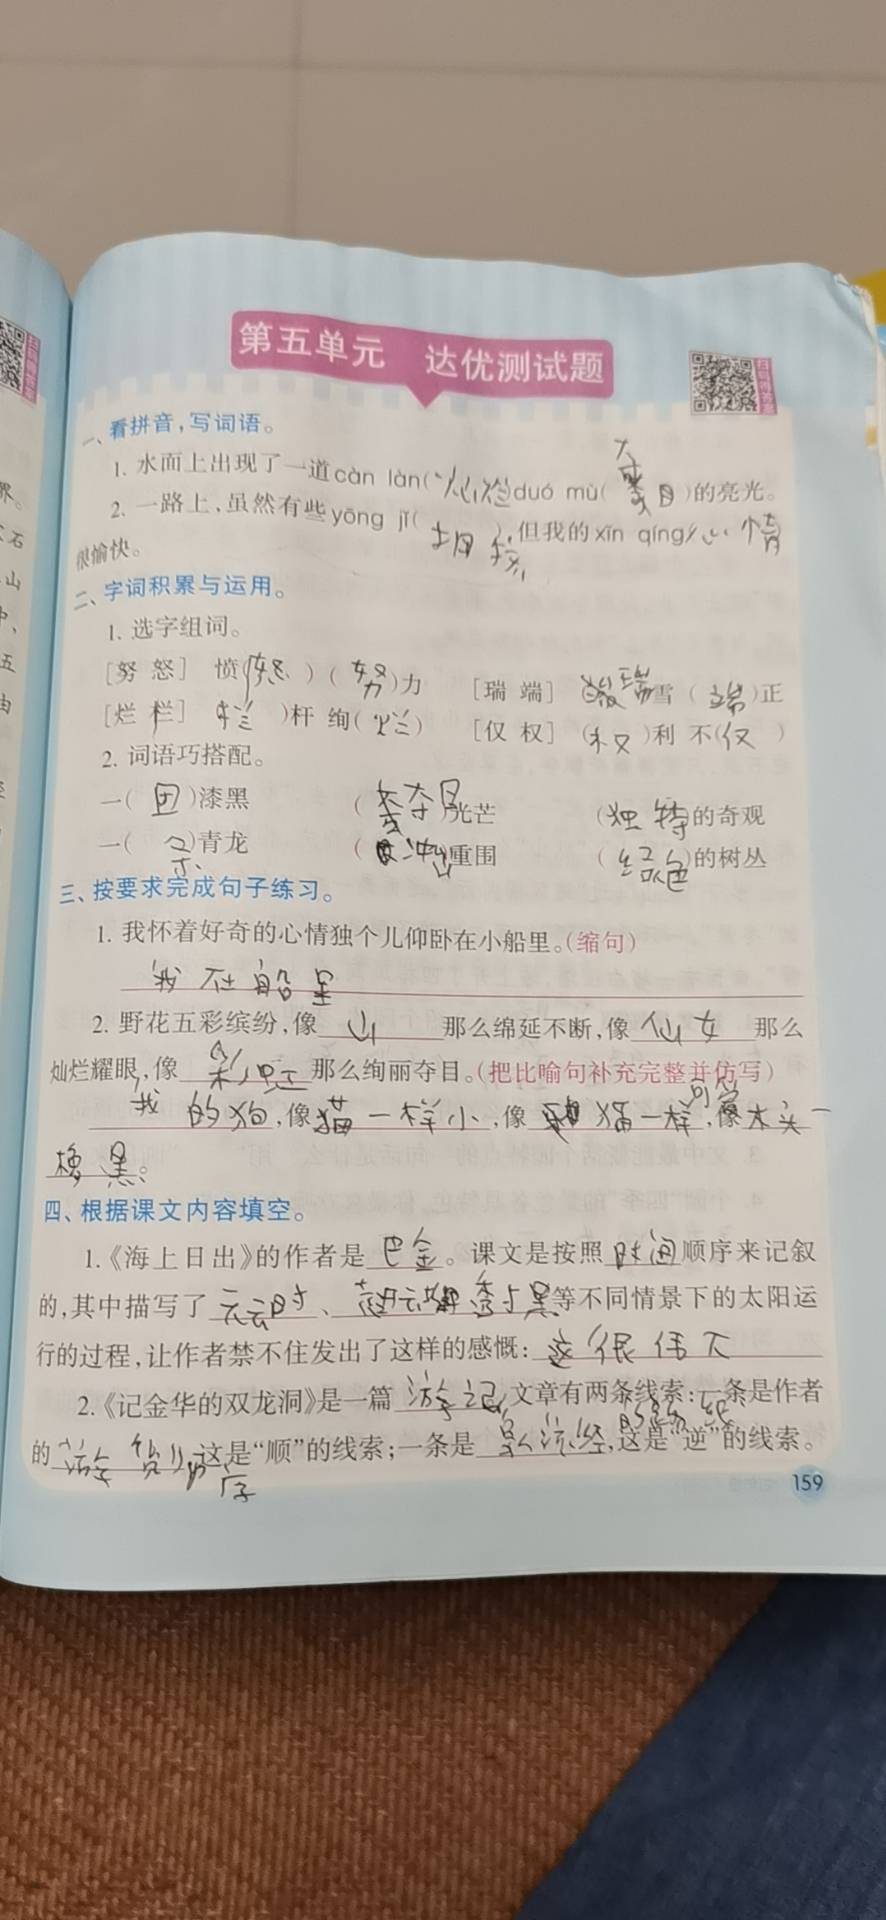 第五单元 达优测试题
扫码得答案
一、看拼音,写词语。
1. 水面上出现了一道càn làn(灿烂duó mù(夺目)的亮光。
2. 一路上,虽然有些yōng jǐ(拥挤),但我的xīn qíng心情
很愉快。
二、字词积累与运用。
1. 选字组词。
[努 怒] 愤(怒)(努)力 [瑞 端] 瑞雪(端)正
[烂 栏] 栏)杆 绚(烂) [仅 权] (权)利 不(仅)
2. 词语巧搭配。
一(团)漆黑 (夺目光芒 (独特的奇观
一(条)青龙 (冲出)重围 (绿色)的树丛
三、按要求完成句子练习。
1. 我怀着好奇的心情独个儿仰卧在小船里。(缩句)
我在船里
2. 野花五彩缤纷,像山那么绵延不断,像仙女那么
灿烂耀眼,像彩虹那么绚丽夺目。(把比喻句补充完整并仿写)
我的狗,像猫一样小,像猫一样可爱,像木头一
样黑。
四、根据课文内容填空。
1.《海上日出》的作者是巴金。课文是按照时间顺序来记叙
的,其中描写了无云时、等不同情景下的太阳运
行的过程,让作者禁不住发出了这样的感慨:这很伟大
2.《记金华的双龙洞》是一篇游记,文章有两条线索:一条是作者
的游览顺序这是“顺”的线索;一条是泉水流经的路线,这是“逆”的线索。
159